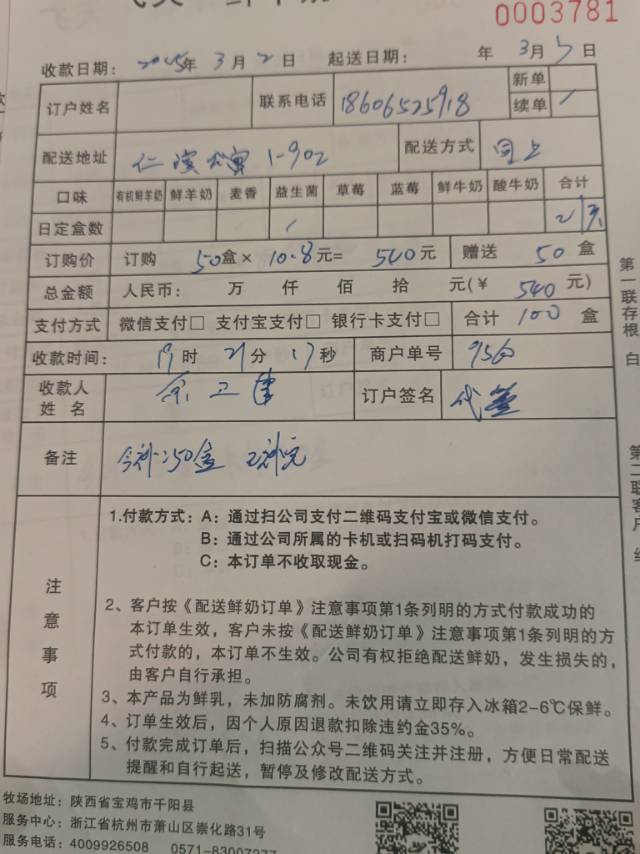 0003781
收款日期：2025年 3月 2日 起送日期： 年 3月 5日
订户姓名 联系电话 18606525918 新单
续单 /
配送地址 1-902 配送方式 同上
口味 有机鲜羊奶 鲜羊奶 麦香 益生菌 草莓 蓝莓 鲜牛奶 酸牛奶 合计
日定盒数 /
订购价 订购 50盒× 10.8元= 540元 赠送 50 盒
总金额 人民币： 万 仟 佰 拾 元(￥ 540 元)
支付方式 微信支付□ 支付宝支付□ 银行卡支付□ 合计 100 盒
收款时间： 19时 21分 17秒 商户单号 9560
收款人
姓 名 订户签名 代签
备注 今补:50盒 已补完
注意事项
1.付款方式：A：通过扫公司支付二维码支付宝或微信支付。
B：通过公司所属的卡机或扫码机打码支付。
C：本订单不收取现金。
2、客户按《配送鲜奶订单》注意事项第1条列明的方式付款成功的
本订单生效，客户未按《配送鲜奶订单》注意事项第1条列明的方
式付款的，本订单不生效。公司有权拒绝配送鲜奶，发生损失的，
由客户自行承担。
3、本产品为鲜乳，未加防腐剂。未饮用请立即存入冰箱2-6℃保鲜。
4、订单生效后，因个人原因退款扣除违约金35%。
5、付款完成订单后，扫描公众号二维码关注并注册，方便日常配送
提醒和自行起送，暂停及修改配送方式。
牧场地址：陕西省宝鸡市千阳县
服务中心：浙江省杭州市萧山区崇化路31号
服务电话：4009926508 0571-83007277
第一联存根 白
第二联客户 红